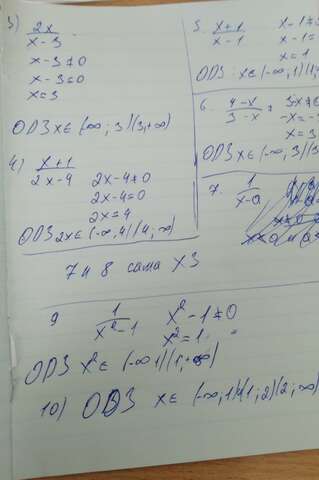 3) 2x / x-3
x-3≠0
x-3=0
x=3
ОДЗ x∈(-∞;3)(3,+∞)
4) x+1 / 2x-4
2x-4≠0
2x-4=0
2x=4
ОДЗ 2x∈(-∞,4)(4,∞)
5. x+1 / x-1
x-1≠0
x-1=
x=1
ОДЗ: x∈(-∞,1)(1
6. 4-x / 3-x
3-x≠0
-x=-
x=3
ОДЗ x∈(-∞,3)(3
7. 1 / x-a
7 и 8 сама ХЗ
9 1 / x²-1
x²-1≠0
x²=1
ОДЗ x²∈(-∞1)(1,+∞)
10) ОДЗ x∈(-∞,1)(1;2)(2;∞)